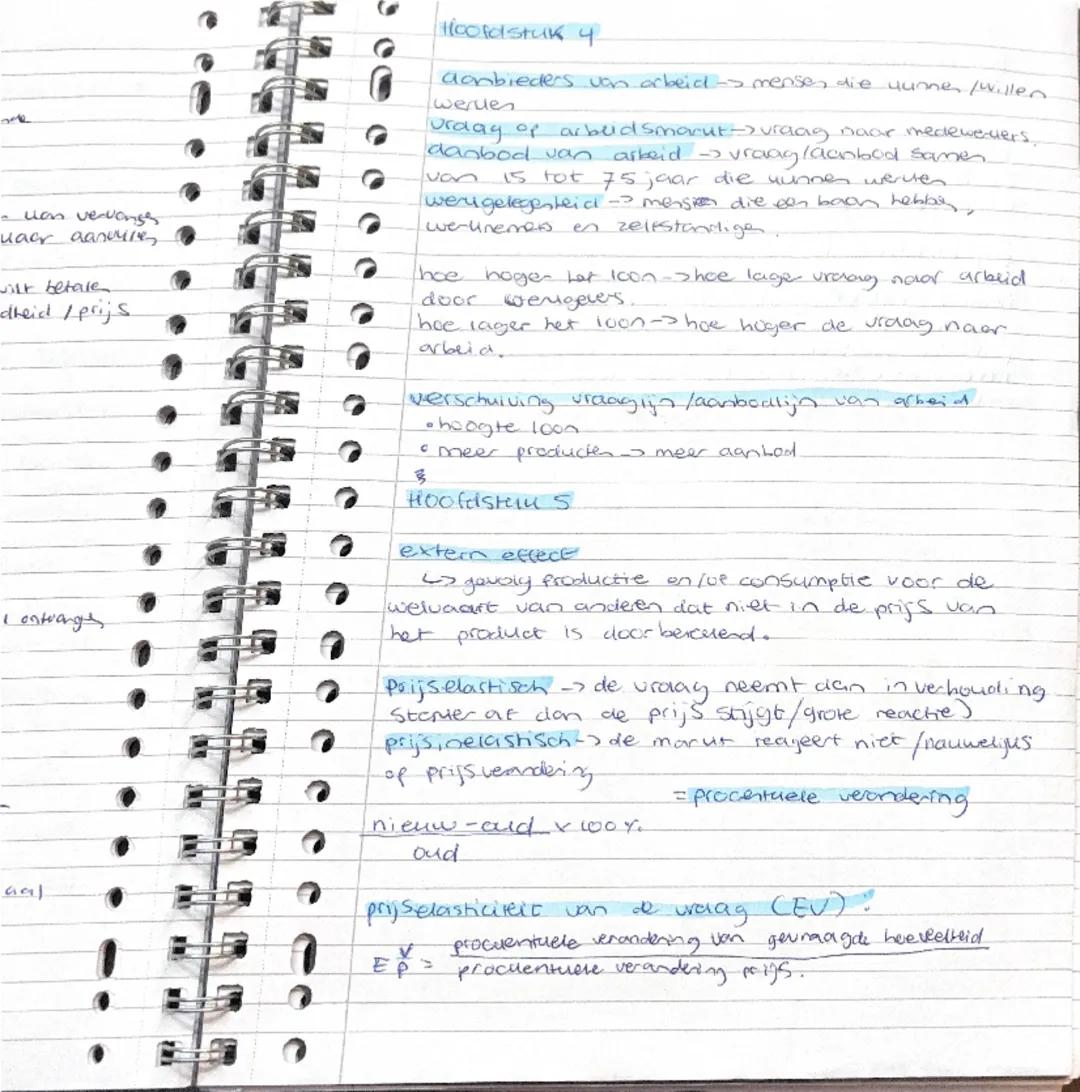 Hoofdstuk 4
aanbieders van arbeid -> mensen die kunnen /willen
werken
vraag op arbeidsmarkt -> vraag naar medewerkers.
aanbod van arbeid -> vraag/aanbod samen
van 15 tot 75 jaar die kunnen werken
werkgelegenheid -> mensen die een baan hebben,
werknemers en zelfstandigen.
hoe hoger het loon -> hoe lager vraag naar arbeid
door werkgevers.
hoe lager het loon -> hoe hoger de vraag naar
arbeid.
verschuiving vraaglijn /aanbodlijn van arbeid
• hoogte loon
• meer producten -> meer aanbod
Hoofdstuk 5
extern effect
↳ gevolg productie en/of consumptie voor de
welvaart van anderen dat niet in de prijs van
het product is doorberekend.
prijselastisch -> de vraag neemt dan in verhouding
sterker af dan de prijs stijgt/grote reactie)
prijsinelastisch -> de markt reageert niet /nauwelijks
op prijsverandering
= procentuele verandering
nieuw - oud x 100%.
oud
prijselasticiteit van de vraag (EV):
procentuele verandering van gevraagde hoeveelheid
E v p =
procentuele verandering prijs.
kan vervangen
naar aanvullen
wilt betalen
dheid / prijs
ontvangen
aal